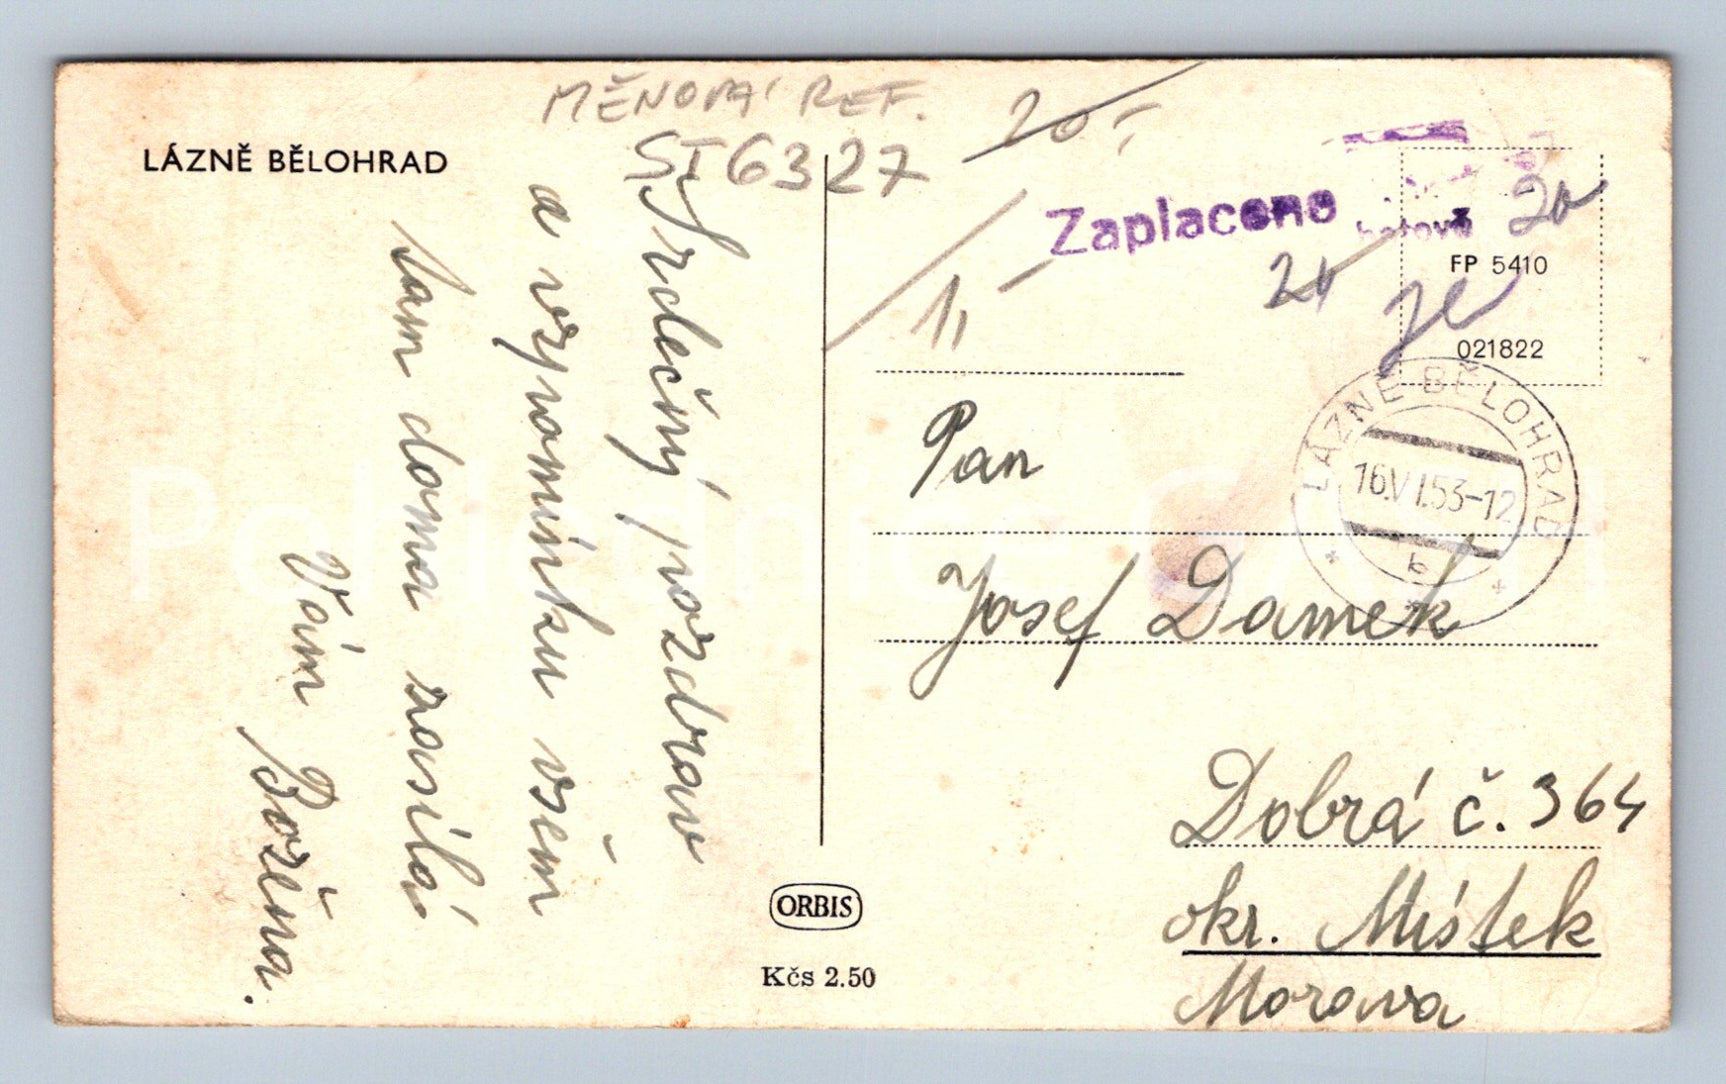 MĚNOVÁ REF.
20,-
ST6327
LÁZNĚ BĚLOHRAD
Srdečný pozdrav
a vzpomínku všem
Vam doma zasílá
Vám Božena.
Zaplaceno hotově
20
20
1,
FP 5410
021822
LÁZNĚ BĚLOHRAD
16.VI.53-12
b
Pan
Josef Damek
Dobrá č. 364
okr. Místek
Morava
ORBIS
Kčs 2.50